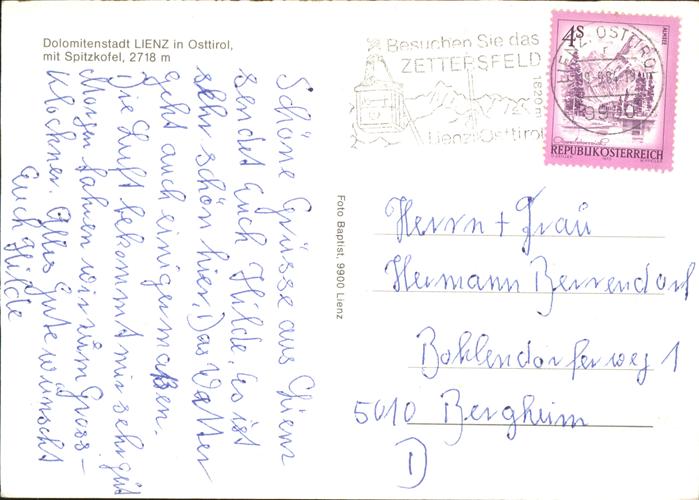 Dolomitenstadt LIENZ in Osttirol,
mit Spitzkofel, 2718 m
Schöne Grüsse aus Lienz
sendet Euch Hilde. Es ist
sehr schön hier. Das Wetter
geht auch einigermaßen.
Die Luft bekommt mir sehr gut
Morgen fahren wir zum Gross-
klockner. Alles Gute wünscht
Euch Hilde
Foto Baptist, 9900 Lienz
Besuchen Sie das
ZETTERSFELD
1820 m
Lienz/Osttirol
LIENZ, OSTTIROL
9900
4S
ALMSEE
REPUBLIK ÖSTERREICH
Herrn + Frau
Hermann Berrendorf
Bohlendorferweg 1
5010 Bergheim
D